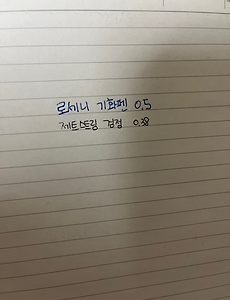 로세니 기화펜 0.5
제트스트림 검점 0.38